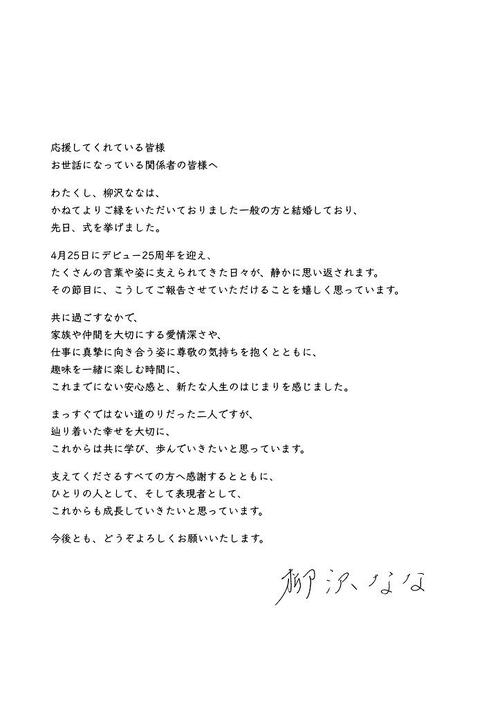 応援してくれている皆様
お世話になっている関係者の皆様へ
わたくし、柳沢ななは、
かねてよりご縁をいただいておりました一般の方と結婚しており、
先日、式を挙げました。
4月25日にデビュー25周年を迎え、
たくさんの言葉や姿に支えられてきた日々が、静かに思い返されます。
その節目に、こうしてご報告させていただけることを嬉しく思っています。
共に過ごすなかで、
家族や仲間を大切にする愛情深さや、
仕事に真摯に向き合う姿に尊敬の気持ちを抱くとともに、
趣味を一緒に楽しむ時間に、
これまでにない安心感と、新たな人生のはじまりを感じました。
まっすぐではない道のりだった二人ですが、
辿り着いた幸せを大切に、
これからは共に学び、歩んでいきたいと思っています。
支えてくださるすべての方へ感謝するとともに、
ひとりの人として、そして表現者として、
これからも成長していきたいと思っています。
今後とも、どうぞよろしくお願いいたします。
柳沢なな